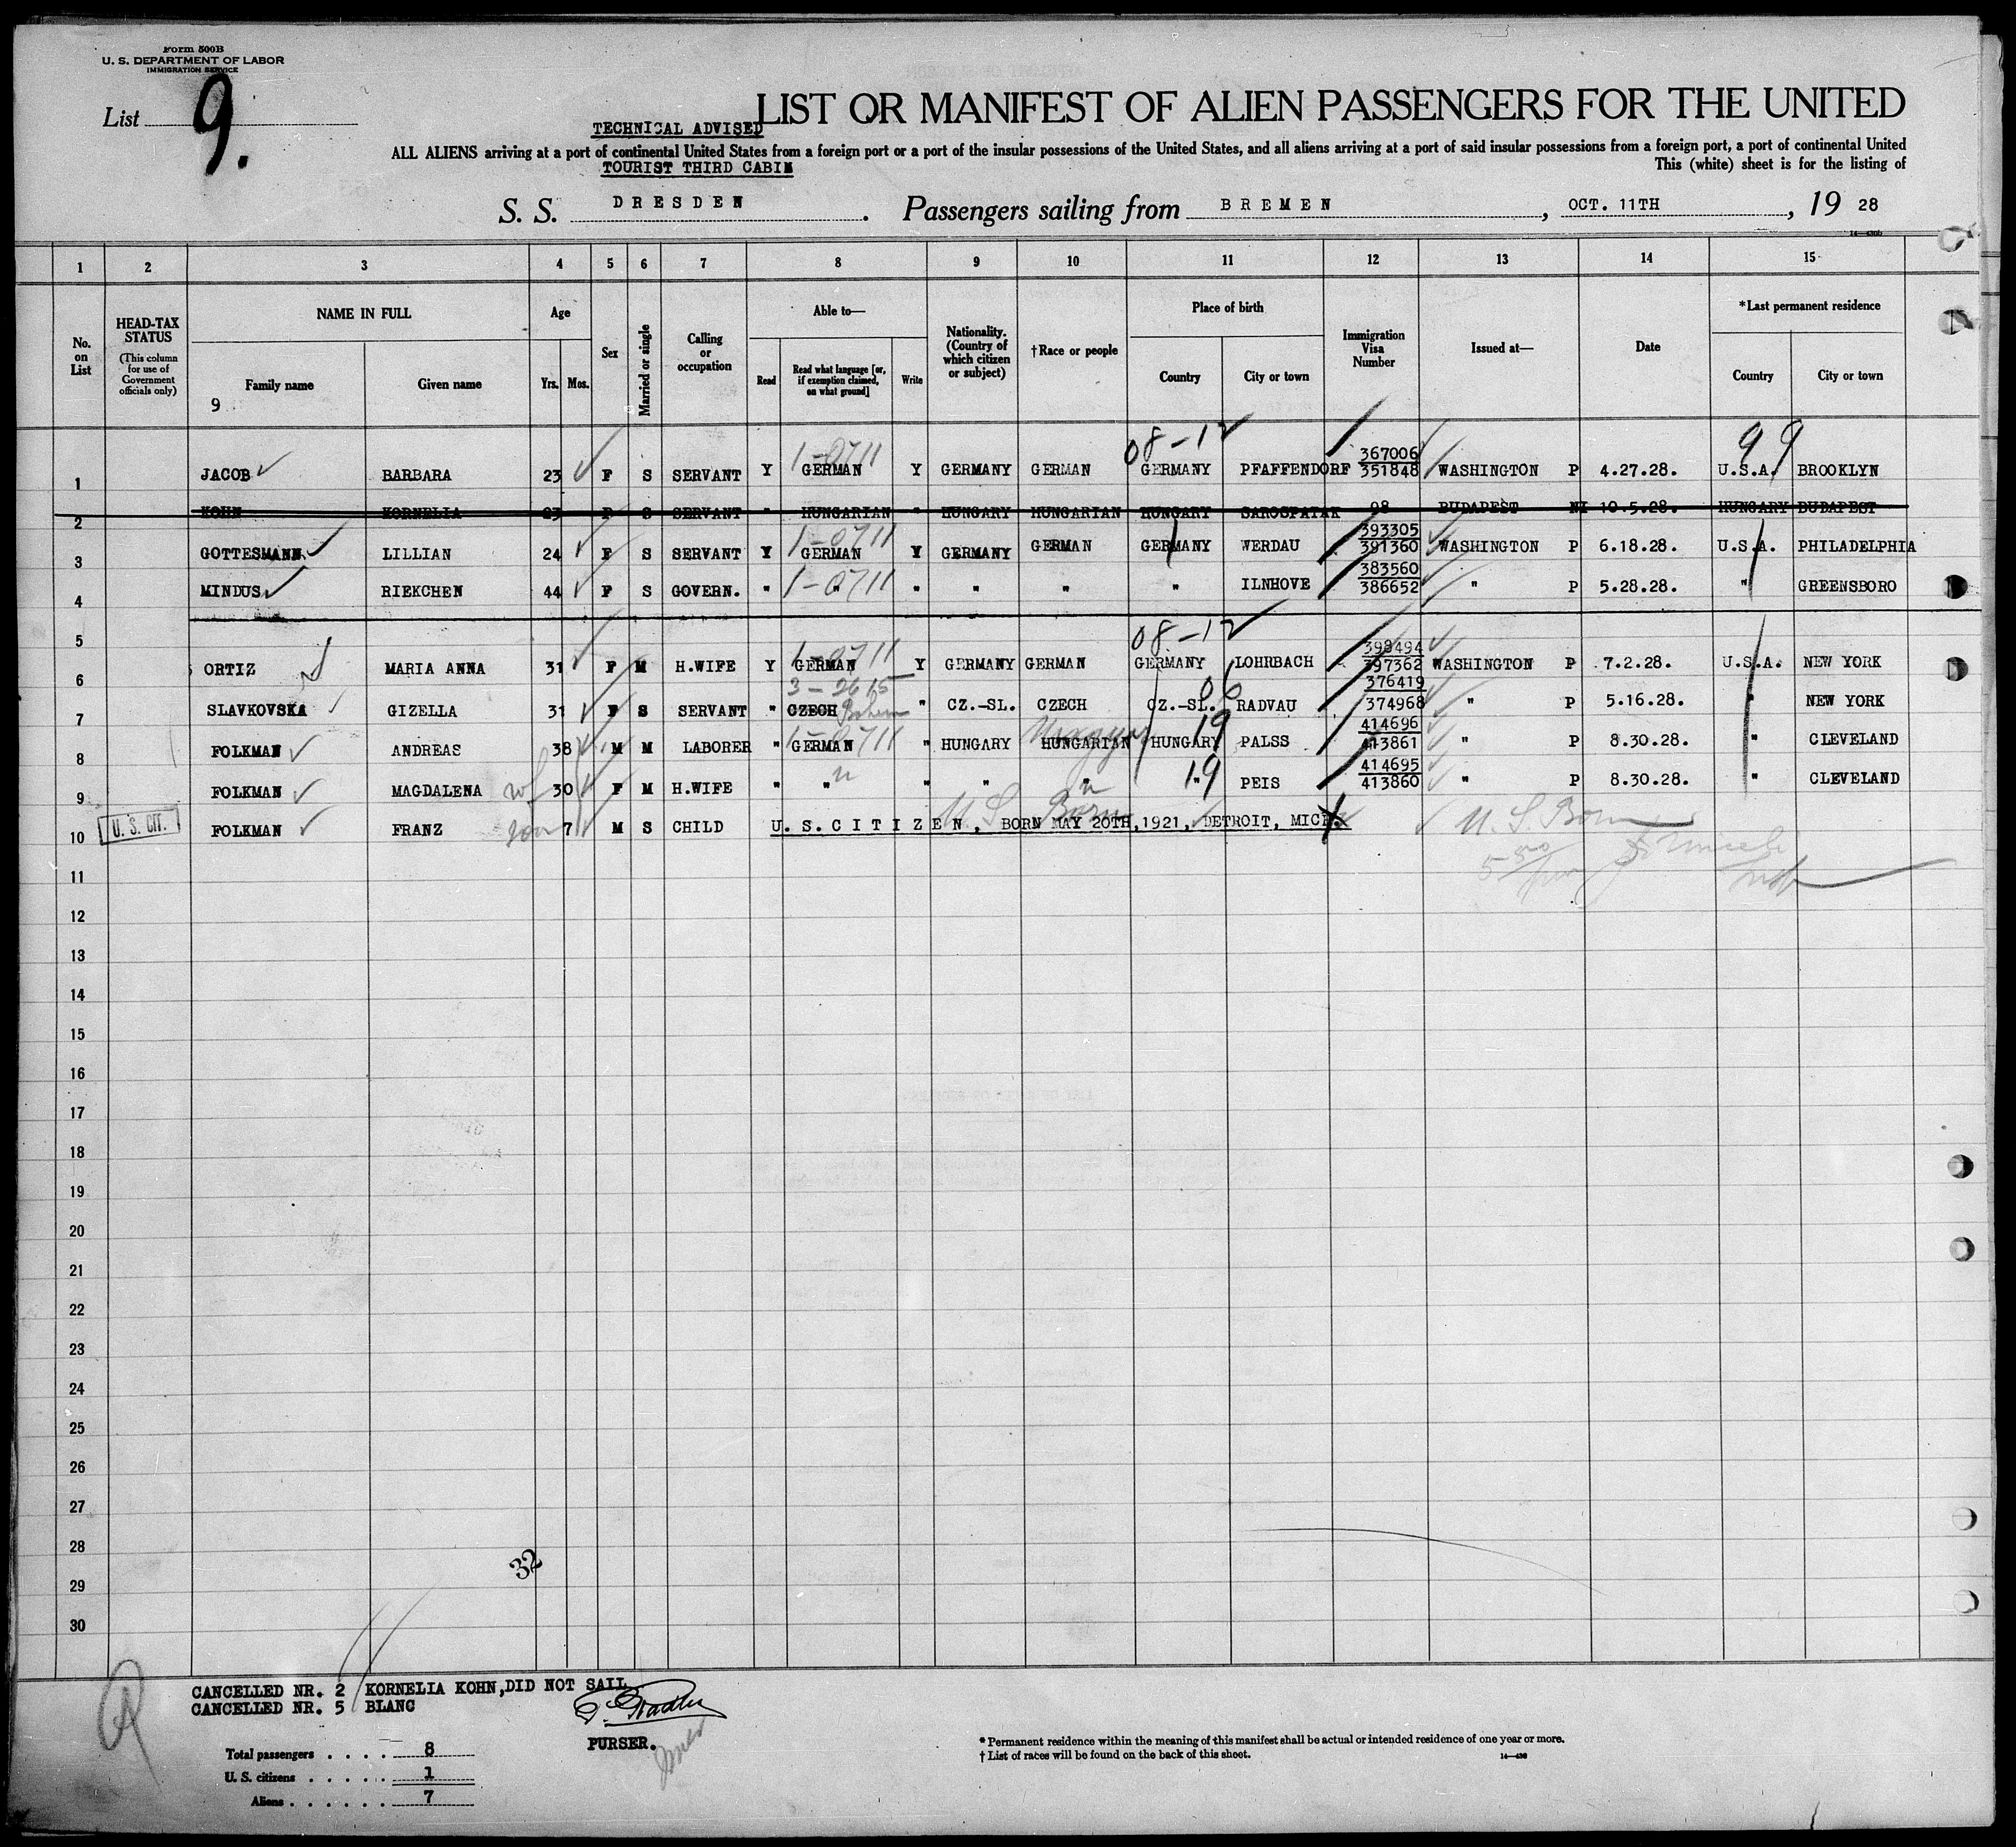 Form 500B
U. S. DEPARTMENT OF LABOR
IMMIGRATION SERVICE
List 9.
LIST OR MANIFEST OF ALIEN PASSENGERS FOR THE UNITED
TECHNICAL ADVISED
ALL ALIENS arriving at a port of continental United States from a foreign port or a port of the insular possessions of the United States, and all aliens arriving at a port of said insular possessions from a foreign port, a port of continental United
TOURIST THIRD CABIN
This (white) sheet is for the listing of
S. S. DRESDEN. Passengers sailing from BREMEN, OCT. 11TH, 19 28
14—430b
1 2 3 4 5 6 7 8 9 10 11 12 13 14 15
No. on List
HEAD-TAX STATUS (This column for use of Government officials only)
NAME IN FULL Family name Given name
9
Age Yrs. Mos.
Sex
Married or single
Calling or occupation
Able to— Read Read what language [or, if exemption claimed, on what ground] Write
Nationality. (Country of which citizen or subject)
†Race or people
Place of birth Country City or town
Immigration Visa Number
Issued at—
Date
*Last permanent residence Country City or town
08-12 99
1-0711 367006
1 JACOB BARBARA 23 F S SERVANT Y GERMAN Y GERMANY GERMAN GERMANY PFAFFENDORF 351848 WASHINGTON P 4.27.28. U.S.A. BROOKLYN
2 KOHN KORNELIA 23 F S SERVANT " HUNGARIAN " HUNGARY HUNGARIAN HUNGARY SAROSPATAK 98 BUDAPEST NI 10.5.28. HUNGARY BUDAPEST
1-0711 393305
3 GOTTESMANN LILLIAN 24 F S SERVANT Y GERMAN Y GERMANY GERMAN GERMANY WERDAU 391360 WASHINGTON P 6.18.28. U.S.A. PHILADELPHIA
1-0711 383560
4 MINDUS RIEKCHEN 44 F S GOVERN. " " " " " " ILNHOVE 386652 " P 5.28.28. " GREENSBORO
5
08-12
1-0711 398494
6 ORTIZ MARIA ANNA 31 F M H.WIFE Y GERMAN Y GERMANY GERMAN GERMANY LOHRBACH 397362 WASHINGTON P 7.2.28. U.S.A. NEW YORK
3-2615 06 376419
7 SLAVKOVSKA GIZELLA 31 F S SERVANT " CZECH Bohem " CZ.-SL. CZECH CZ.-SL. RADVAU 374968 " P 5.16.28. " NEW YORK
1-0711 Magyar 19 414696
8 FOLKMAN ANDREAS 38 M M LABORER " GERMAN " HUNGARY HUNGARIAN HUNGARY PALSS 413861 " P 8.30.28. " CLEVELAND
19 414695
9 FOLKMAN MAGDALENA wf 30 F M H.WIFE " " " " " " PEIS 413860 " P 8.30.28. " CLEVELAND
U. S. CIT.
U S Born
10 FOLKMAN FRANZ son 7 M S CHILD U.S. CITIZEN, BORN MAY 20TH, 1921, DETROIT, MICH. U S Born
11
12
13
14
15
16
17
18
19
20
21
22
23
24
25
26
27
28
32
29
30
CANCELLED NR. 2 KORNELIA KOHN, DID NOT SAIL
CANCELLED NR. 5 BLANC
PURSER.
Total passengers . . . . 8
U. S. citizens . . . . . 1
Aliens . . . . . . 7
* Permanent residence within the meaning of this manifest shall be actual or intended residence of one year or more.
† List of races will be found on the back of this sheet.
14—430